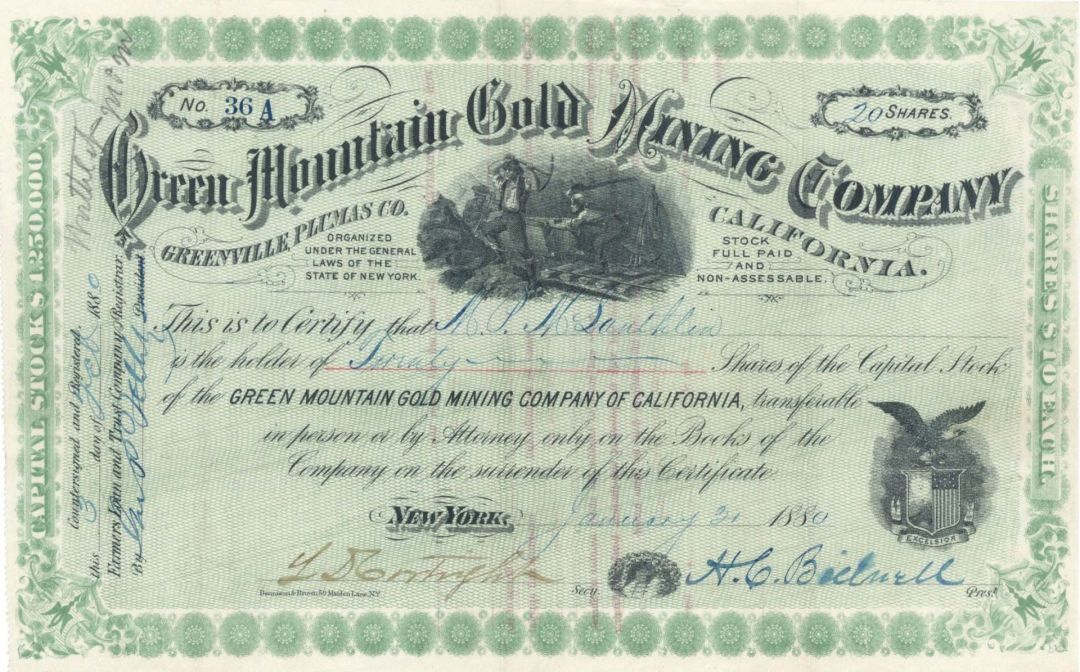 No. 36 A
20 SHARES.
Green Mountain Gold MINING COMPANY
GREENVILLE, PLUMAS CO.
CALIFORNIA.
ORGANIZED
UNDER THE GENERAL
LAWS OF THE
STATE OF NEW YORK.
STOCK
FULL PAID
AND
NON-ASSESSABLE.
This is to Certify that
is the holder of Twenty Shares of the Capital Stock
of the GREEN MOUNTAIN GOLD MINING COMPANY OF CALIFORNIA, transferable
in person or by Attorney only on the Books of the
Company on the surrender of this Certificate
NEW YORK, January 31 1880
EXCELSIOR
Secy.
H. C. Bidwell
Prest.
Dennison & Brown 59 Maiden Lane, N.Y.
CAPITAL STOCK $1,250,000.
SHARES $10 EACH.
Countersigned and Registered,
this 3 day of Feb 1880
Farmers Loan and Trust Company Registrar.
By President.